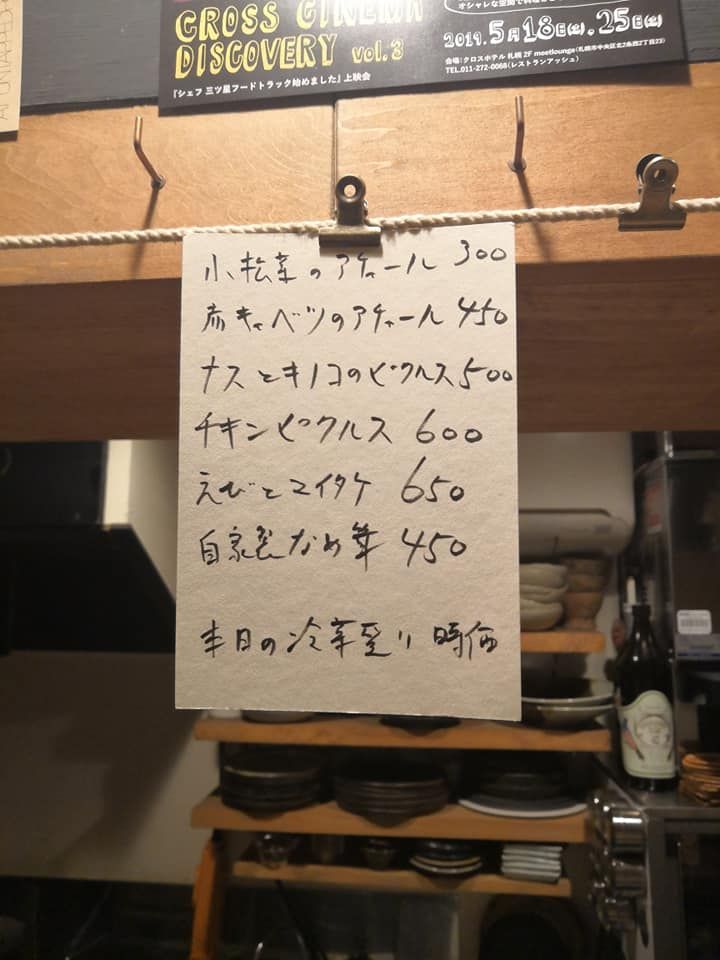 CROSS CINEMA
DISCOVERY vol.3
『シェフ 三ツ星フードトラック始めました』上映会
2019.5月18日㊏.25日㊏
会場:クロスホテル 札幌 2F meetlounge(札幌市中央区北2条西2丁目23)
TEL.011-272-0068(レストランアッシュ)
小松菜のアチャール 300
赤キャベツのアチャール 450
ナスとキノコのピクルス 500
チキンピクルス 600
えびとマイタケ 650
自家製なめ茸 450
本日の冷菜盛り 時価